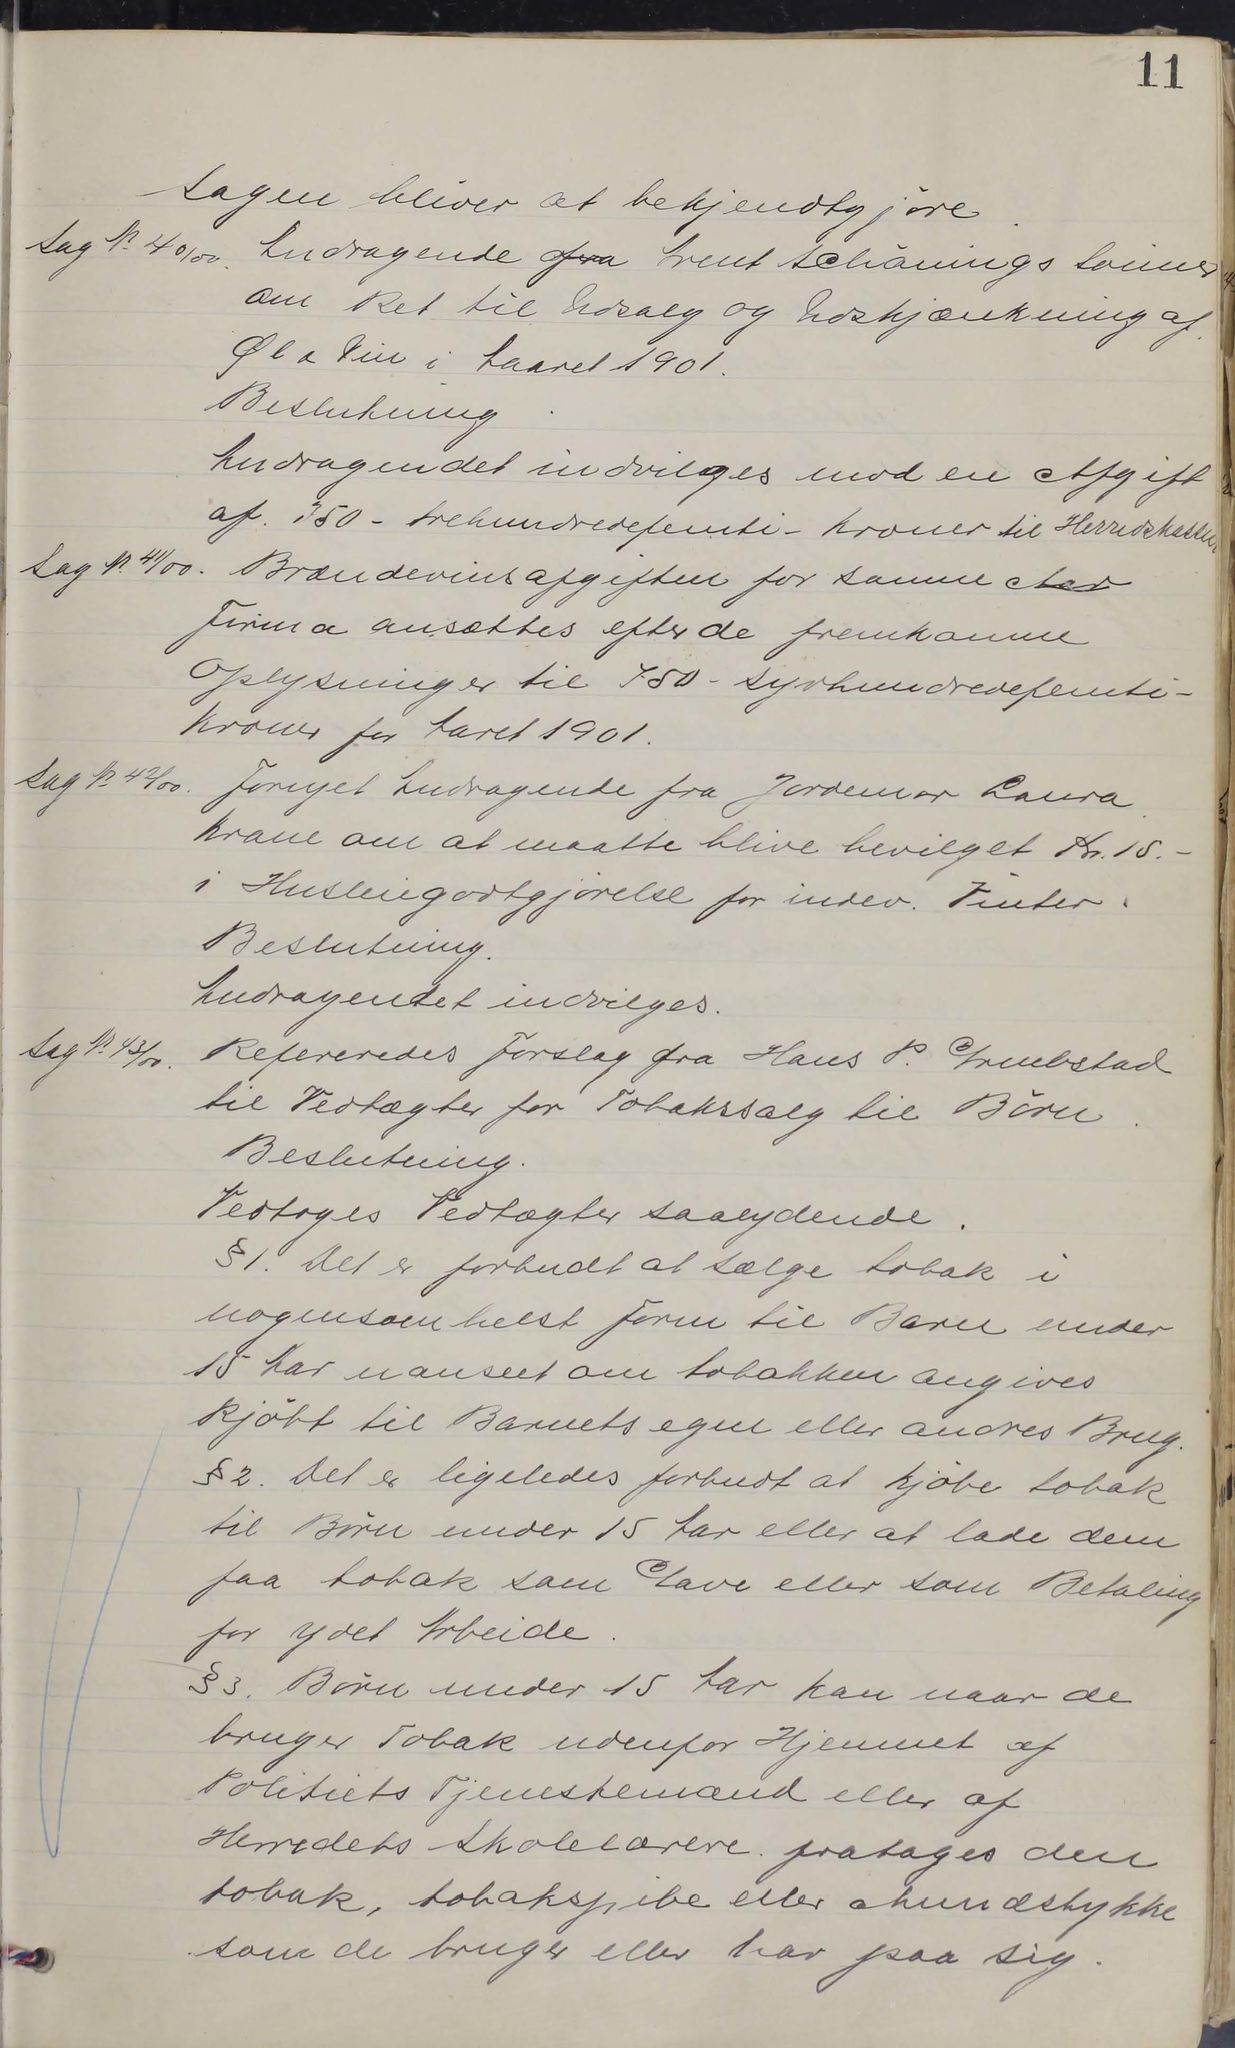 11
Sagen bliver at bekjendtgjøre.
Sag No 40/00. Andragende fra Brent Schönings Sønner
om Ret til Udsalg og Udskjænkning af
Øl & Vin i Aaret 1901.
Beslutning.
Andragendet indvilges mod en Afgift
af 350 - trehundredefemti - Kroner til Herredskassen
Sag No 41/00. Brændevinsafgiften for samme
Firma ansættes efter de fremkomne
Oplysninger til 750 - syvhundredefemti -
Kroner for Aaret 1901.
Sag No 42/00. Fornyet Andragende fra Jordemor Laura
Krane om at maatte blive bevilget Kr. 15.-
i Husleiegodtgjørelse for indev. Vinter.
Beslutning.
Andragendet indvilges.
Sag No 43/00. Refereredes Forslag fra Hans P.
til Vedtægter for Tobakssalg til Børn.
Beslutning.
Vedtoges Vedtægter saalydende.
§ 1. Det er forbudt at sælge Tobak i
nogensomhelst Form til Barn under
15 Aar uanseet om Tobakken angives
kjøbt til Barnets egen eller andres Brug.
§ 2. Det er ligeledes forbudt at kjøbe Tobak
til Børn under 15 Aar eller at lade dem
faa Tobak som Gave eller som Betaling
for ydet Arbeide.
§ 3. Børn under 15 Aar kan naar de
bruger Tobak udenfor Hjemmet af
Politiets Tjenestemænd eller af
Herredets Skolelærere fratages den
Tobak, Tobakspibe eller Mundstykke
som de bruger eller har paa sig.